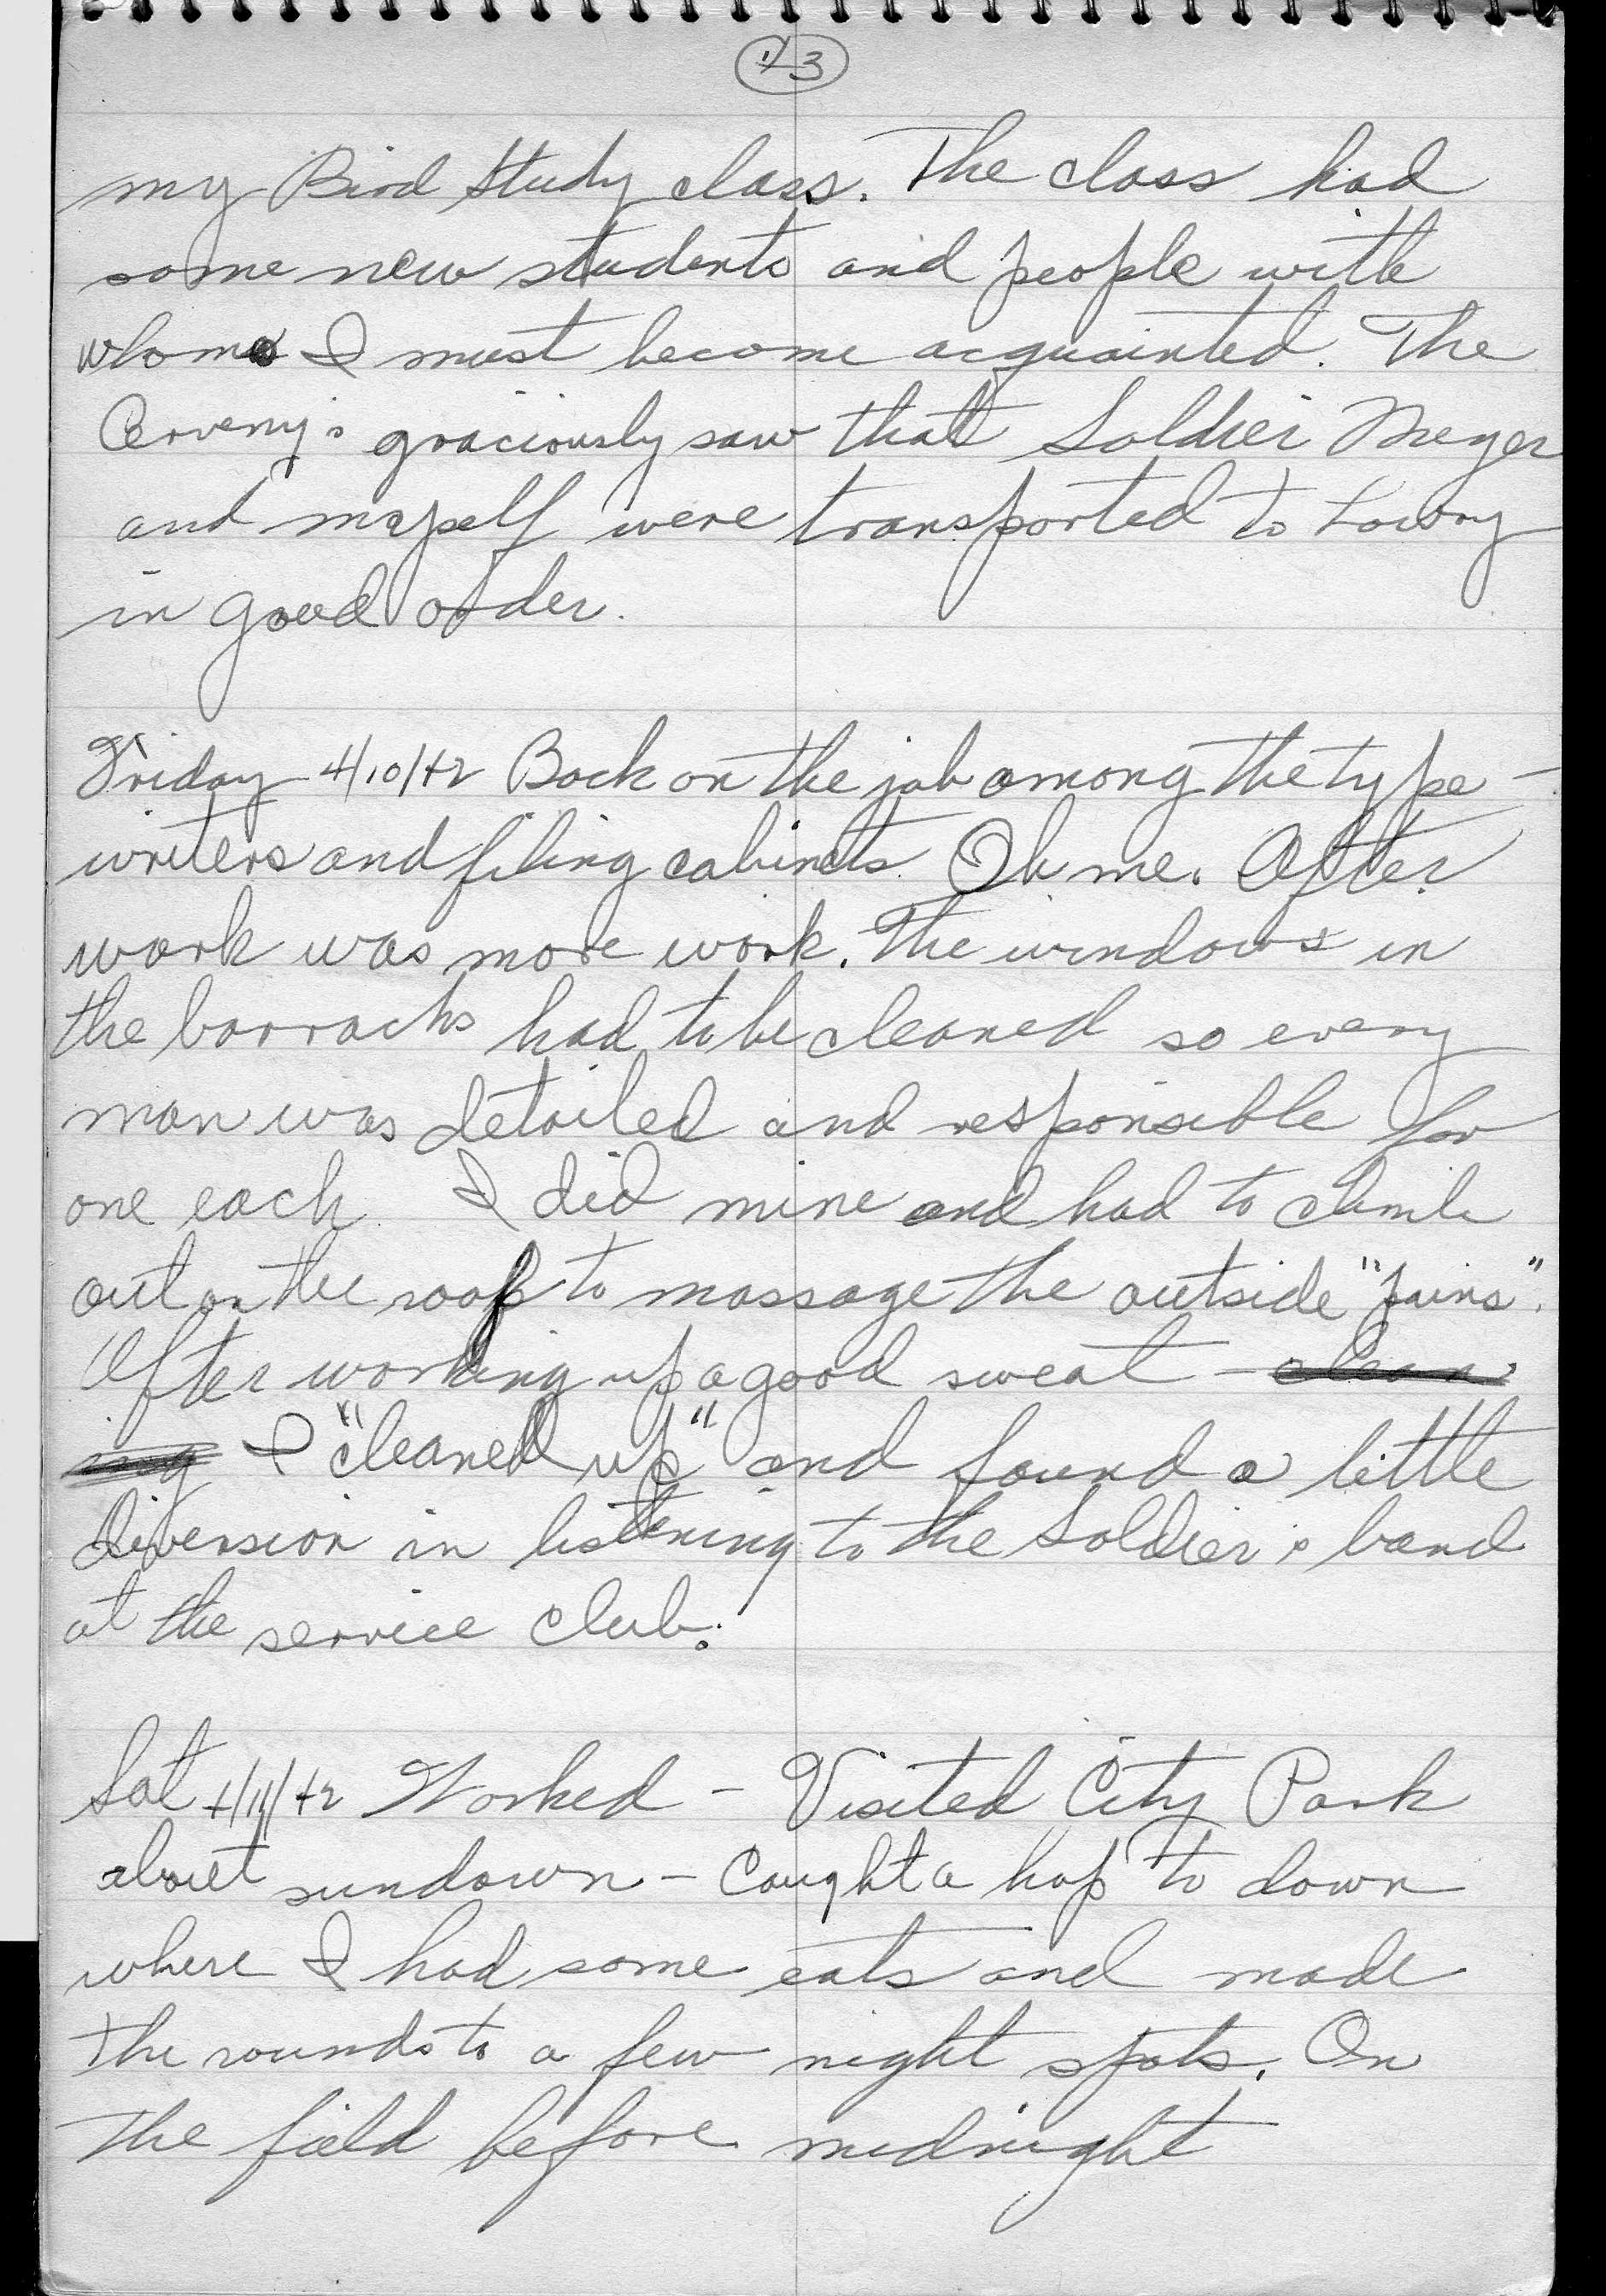 my Bird Study class. The class had
some new students and people with
whom I must become acquainted. The
Cerveny's graciously saw that Soldier Meyer
and myself were transported to Lowry
in good order.
Friday 4/10/42 Back on the job among the type-
writers and filing cabinets. Oh me. After
work was more work. The windows in
the barracks had to be cleaned so every
man was detailed and responsible for
one each. I did mine and had to climb
out on the roof to massage the outside "pains".
After working up a good sweat - clean
ing I "cleaned up" and found a little
diversion in listening to the Soldier's band
at the service club.
Sat 4/11/42 Worked - Visited City Park
about sundown - Caught a hop to down
where I had some eats and made
the rounds to a few night spots. On
the field before midnight